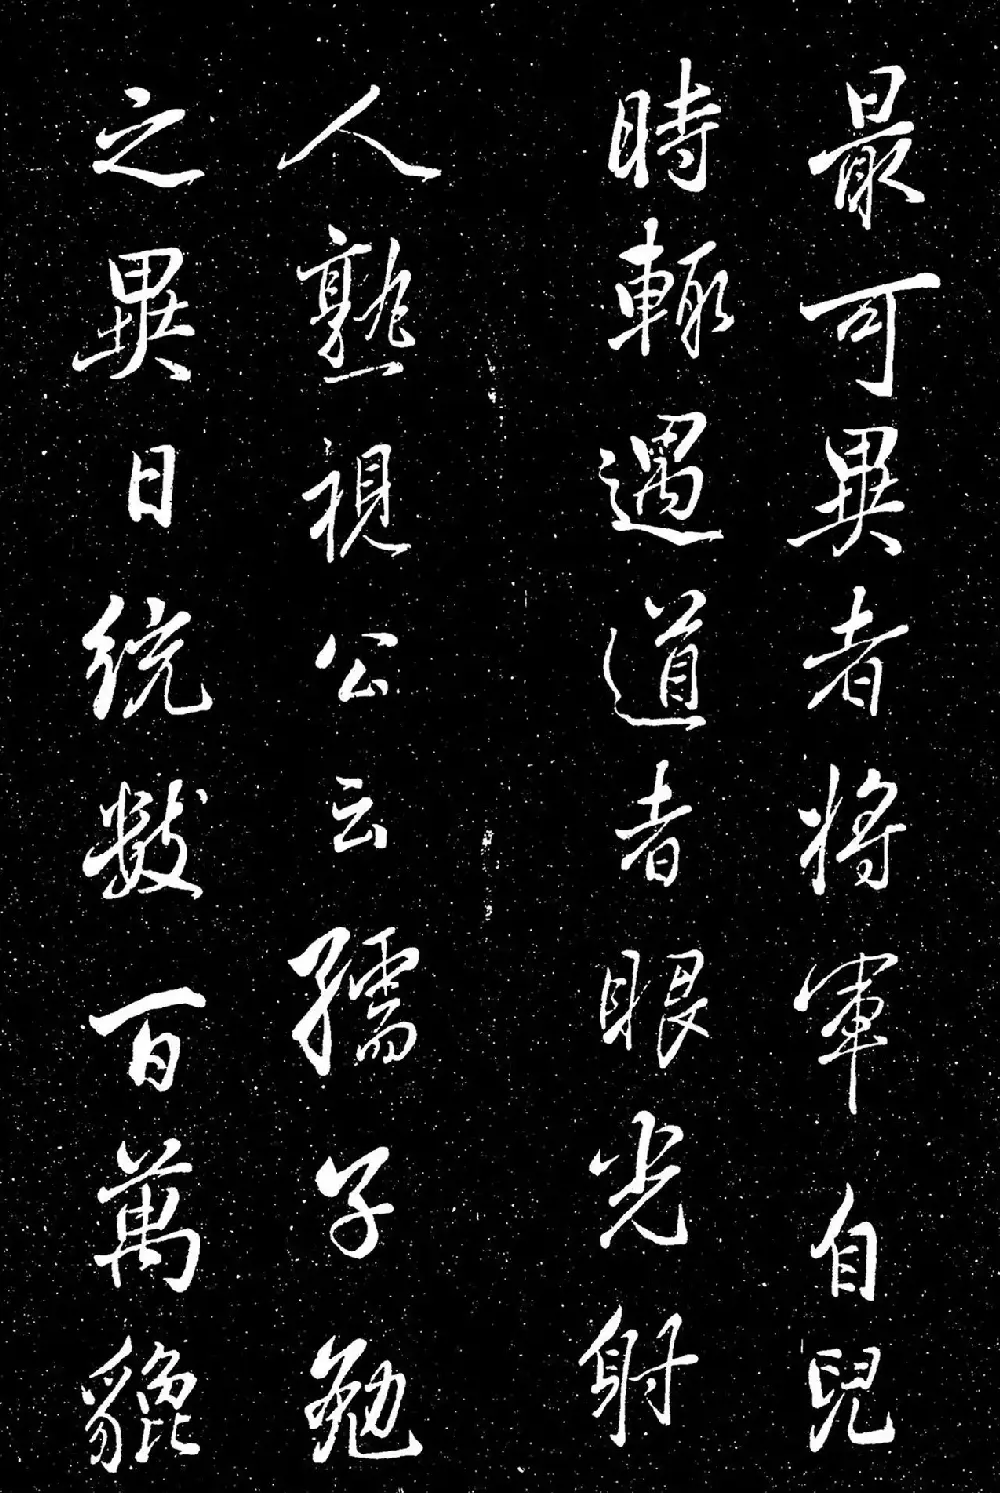 最可異者将軍自兒
時輙遇道者眼光射
人熟視公云孺子勉
之異日統数百萬貔